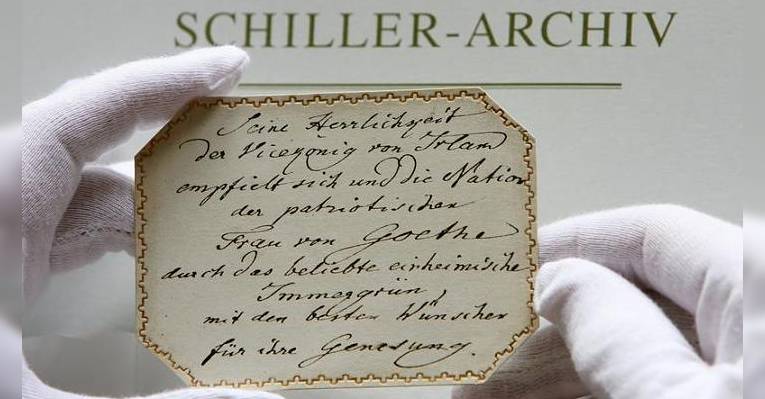 SCHILLER-ARCHIV
Seine Herrlichzeit
der Vicezönig von Irland
empfielt sich und die Nation
der patriotischen
Frau von Goethe
durch das beliebte einheimische
Immergrün,
mit den besten Wünschen
für ihre Genesung.